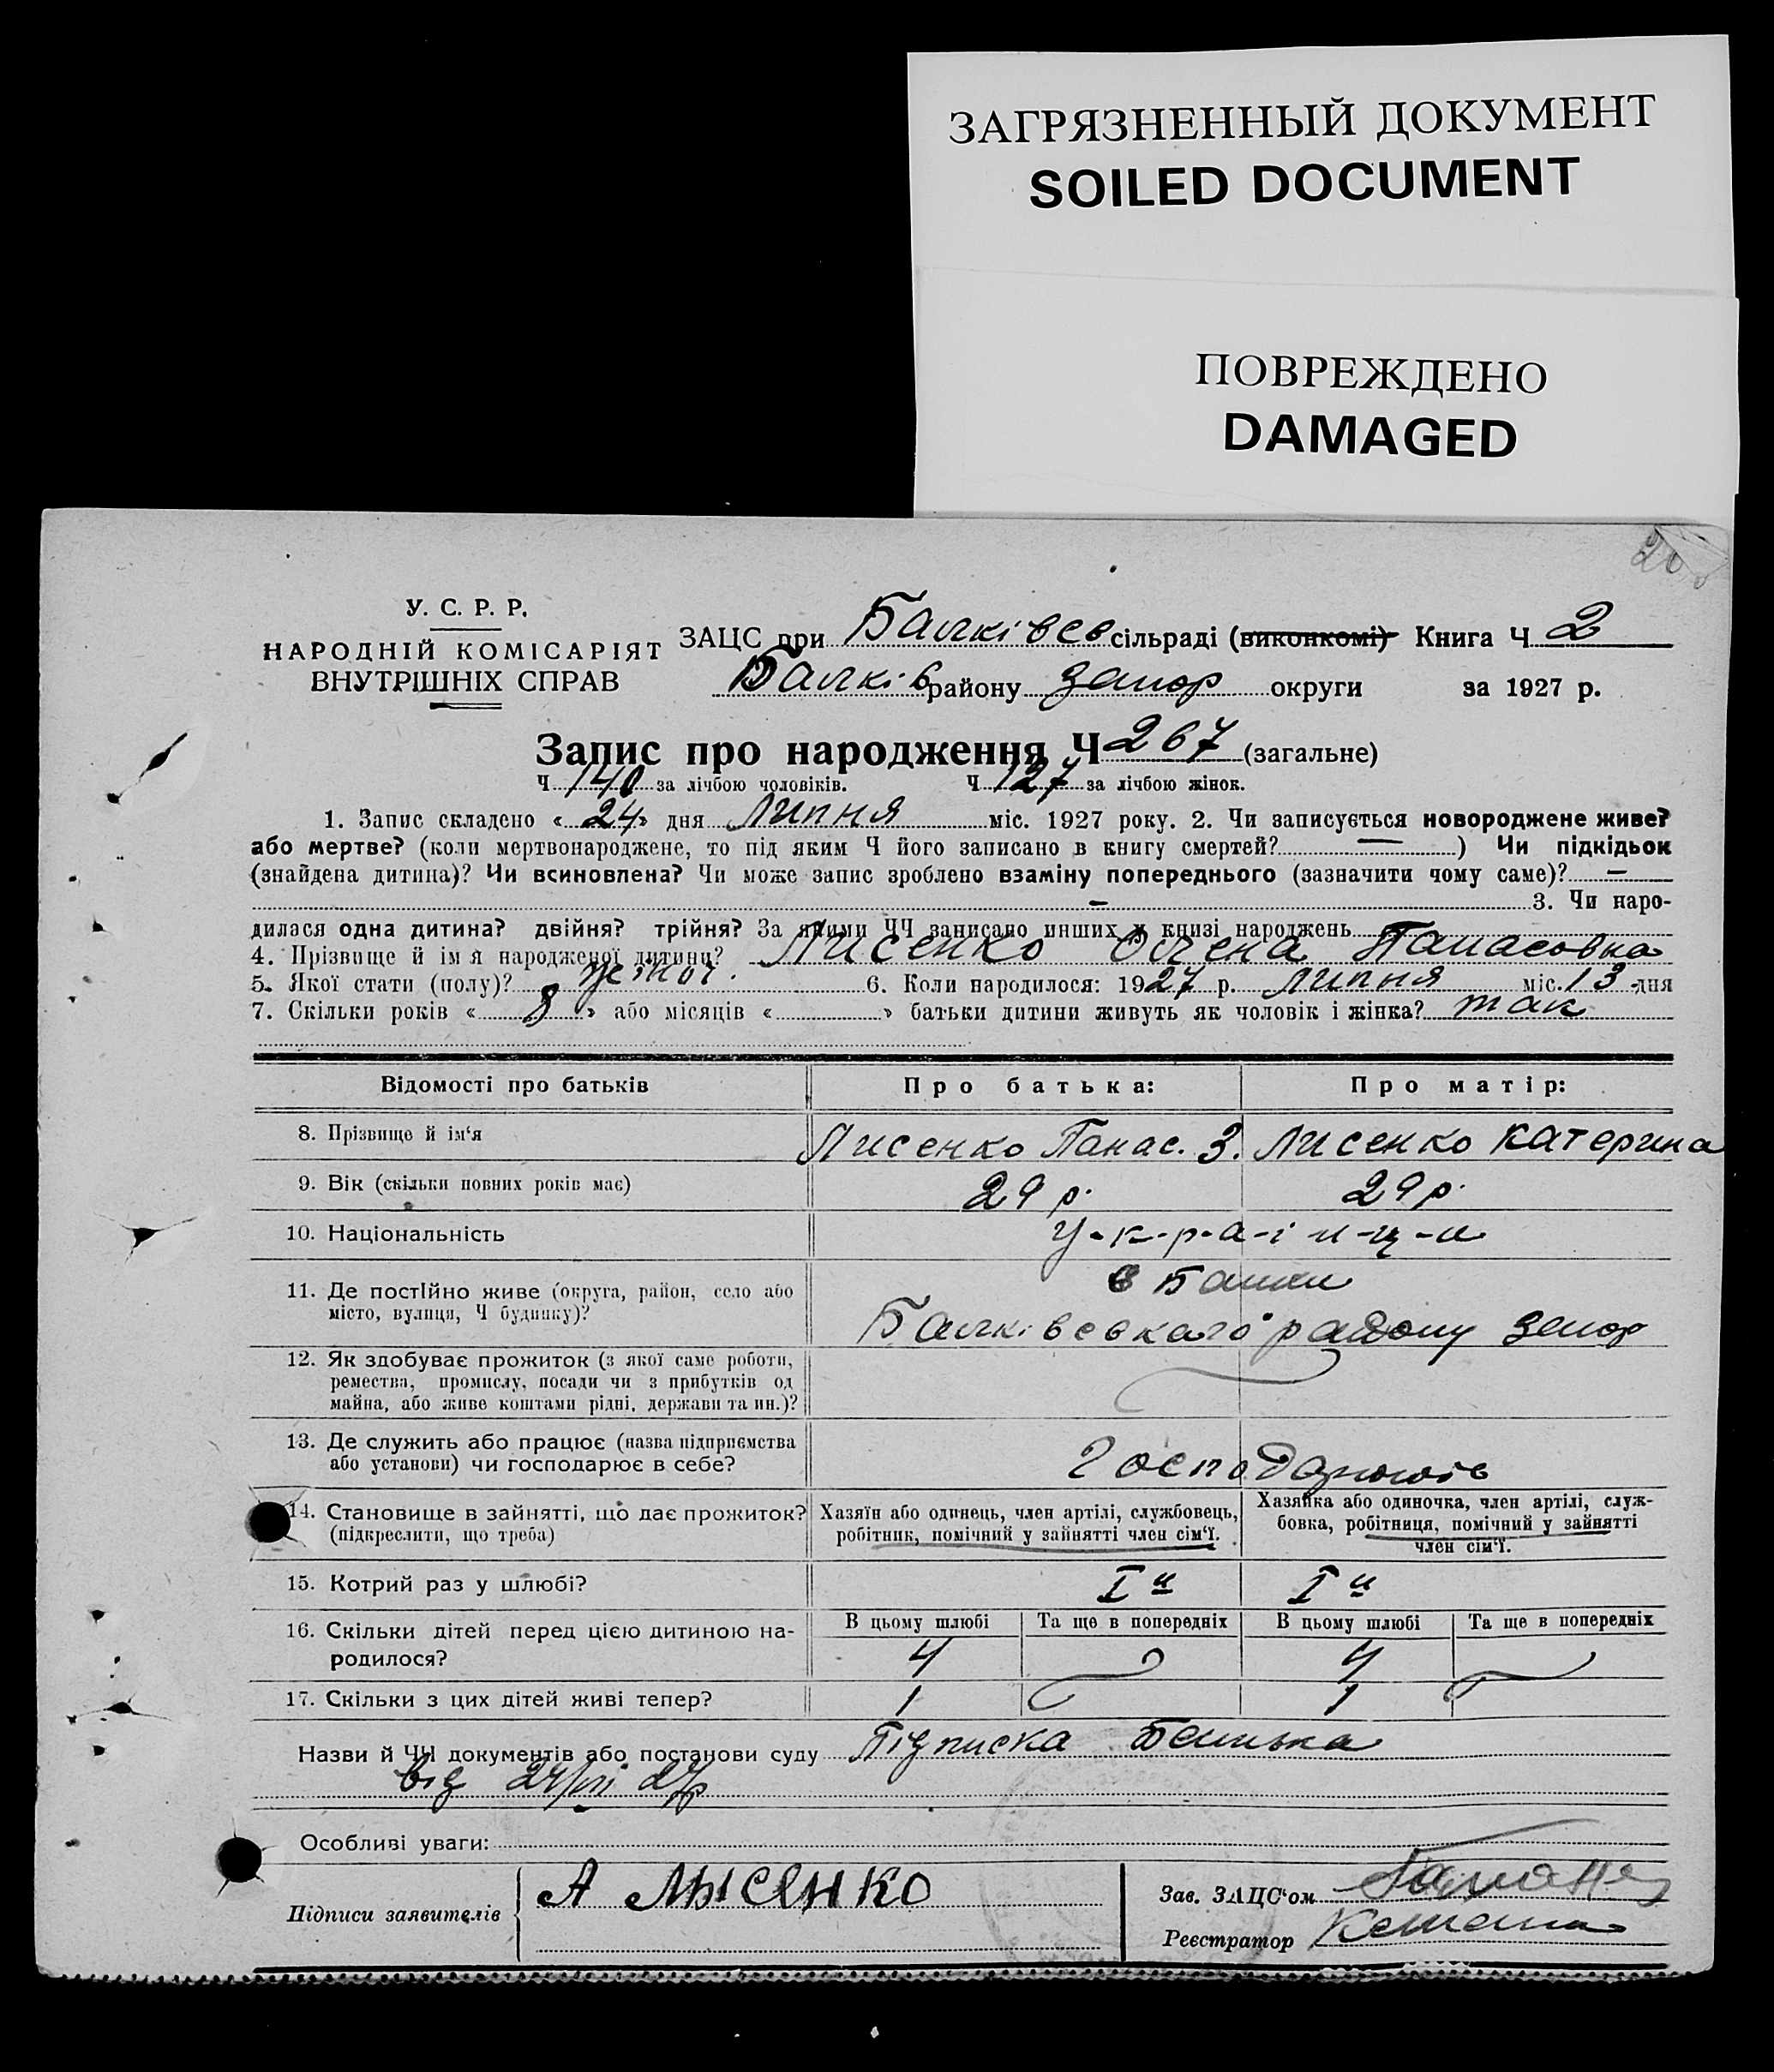 ЗАГРЯЗНЕННЫЙ ДОКУМЕНТ
SOILED DOCUMENT
ПОВРЕЖДЕНО
DAMAGED
20
У. С. Р. Р.
НАРОДНІЙ КОМІСАРІЯТ
ВНУТРІШНІХ СПРАВ
ЗАЦС при Балківсв сільраді (виконкомі) Книга Ч 2
Балків району Запор округи за 1927 р.
Запис про народження Ч 267 (загальне)
Ч 140 за лічбою чоловіків. Ч 127 за лічбою жінок.
1. Запис складено «24» дня Липня міс. 1927 року. 2. Чи записується новороджене живе?
або мертве? (коли мертвонароджене, то під яким Ч його записано в книгу смертей? — ) Чи підкідьок
(знайдена дитина)? Чи всиновлена? Чи може запис зроблено взаміну попереднього (зазначити чому саме)? —
— 3. Чи наро-
дилася одна дитина? двійня? трійня? За якими ЧЧ записано инших у книзі народжень
4. Прізвище й ім'я народженої дитини? Лисенко Олена Панасовна
5. Якої стати (полу)? жіноч. 6. Коли народилося: 1927 р. Липня міс. 13 дня
7. Скільки років «8» або місяців « » батьки дитини живуть як чоловік і жінка? так
Відомості про батьків Про батька: Про матір:
8. Прізвище й ім'я Лисенко Панас. З. Лисенко Катерина
9. Вік (скільки повних років має) 29 р. 29 р.
10. Національність У-к-р-а-ї-н-ц-и
11. Де постійно живе (округа, район, село або
місто, вулиця, Ч будинку)? в Балки
Балківського району Запор
12. Як здобуває прожиток (з якої саме роботи,
ремества, промислу, посади чи з прибутків од
майна, або живе коштами рідні, держави та ин.)?
13. Де служить або працює (назва підприємства
або установи) чи господарює в себе?
14. Становище в зайнятті, що дає прожиток?
(підкреслити, що треба)
Хазяїн або одинець, член артілі, службовець,
робітник, помічний у зайнятті член сім'ї.
Хазяйка або одиночка, член артілі, служ-
бовка, робітниця, помічний у зайнятті
член сім'ї.
15. Котрий раз у шлюбі? I й I й
16. Скільки дітей перед цією дитиною на-
родилося?
В цьому шлюбі Та ще в попередніх В цьому шлюбі Та ще в попередніх
4 4
17. Скільки з цих дітей живі тепер? 1 1
Назви й ЧЧ документів або постанови суду Підписка Батька
від 24/VII 27р
Особливі уваги:
Підписи заявителів А Лысенко
Зав. ЗАЦС'ом
Реєстратор